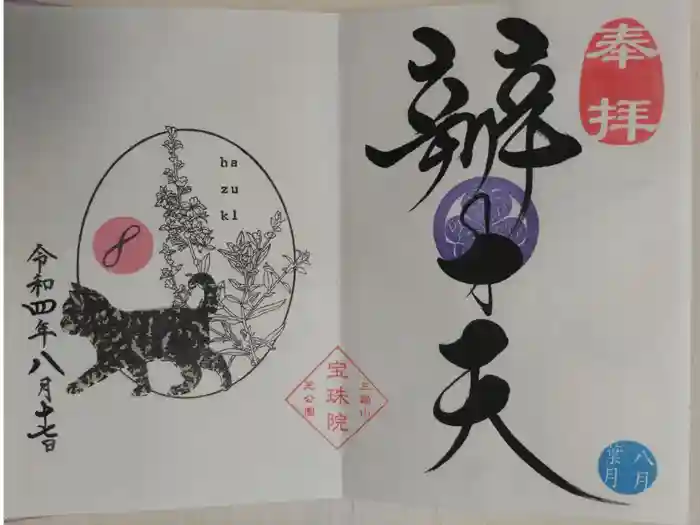 奉拝
辨才天
八月
葉月
三縁山
宝珠院
芝公園
ha
zu
ki
8
令和四年八月十七日